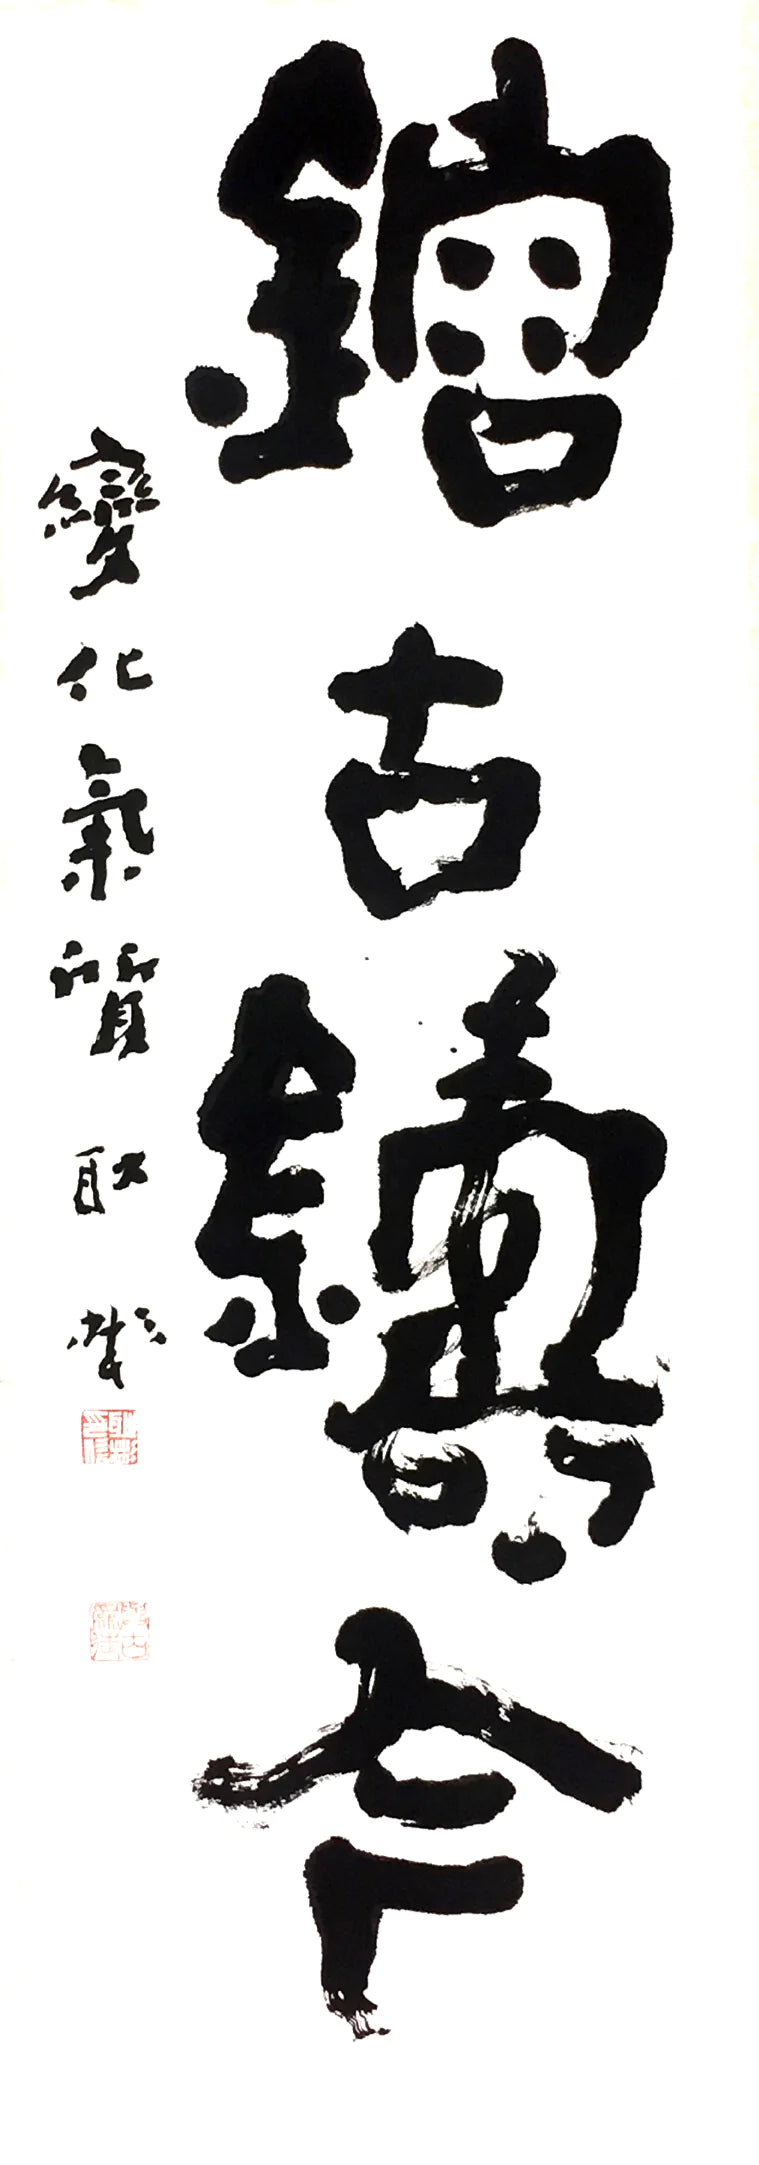 鎔古鑄今
變化氣質 耿彬